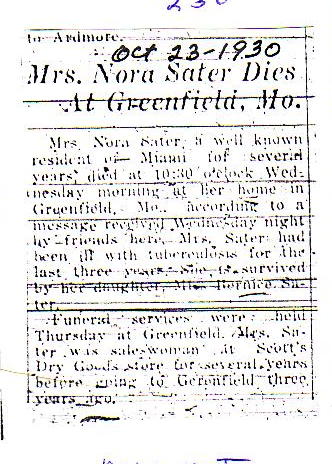 230
to Ardmore.
Oct 23-1930
Mrs. Nora Sater Dies
At Greenfield, Mo.
Mrs. Nora Sater, a well known
resident of Miami for several
years, died at 10:30 o'clock Wed-
nesday morning at her home in
Greenfield, Mo., according to a
message received Wednesday night
by friends here. Mrs. Sater had
been ill with tuberculosis for the
last three years. She is survived
by her daughter, Bernice Sa-
ter.
Funeral services were held
Thursday at Greenfield. Mrs. Sa-
ter was saleswoman at Scott's
Dry Goods store for several years
before going to Gerenfield three
years ago.